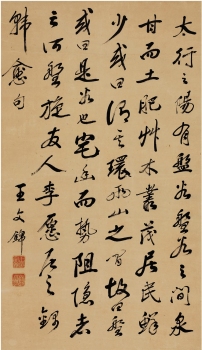 太行之陽有盤谷盤谷之間泉
甘而土肥艸木叢茂居民鮮
少或曰謂其環兩山之間故曰盤
或曰是谷也宅幽而勢阻隱者
之所盤旋友人李愿居之 錄
韓愈句
王文錦